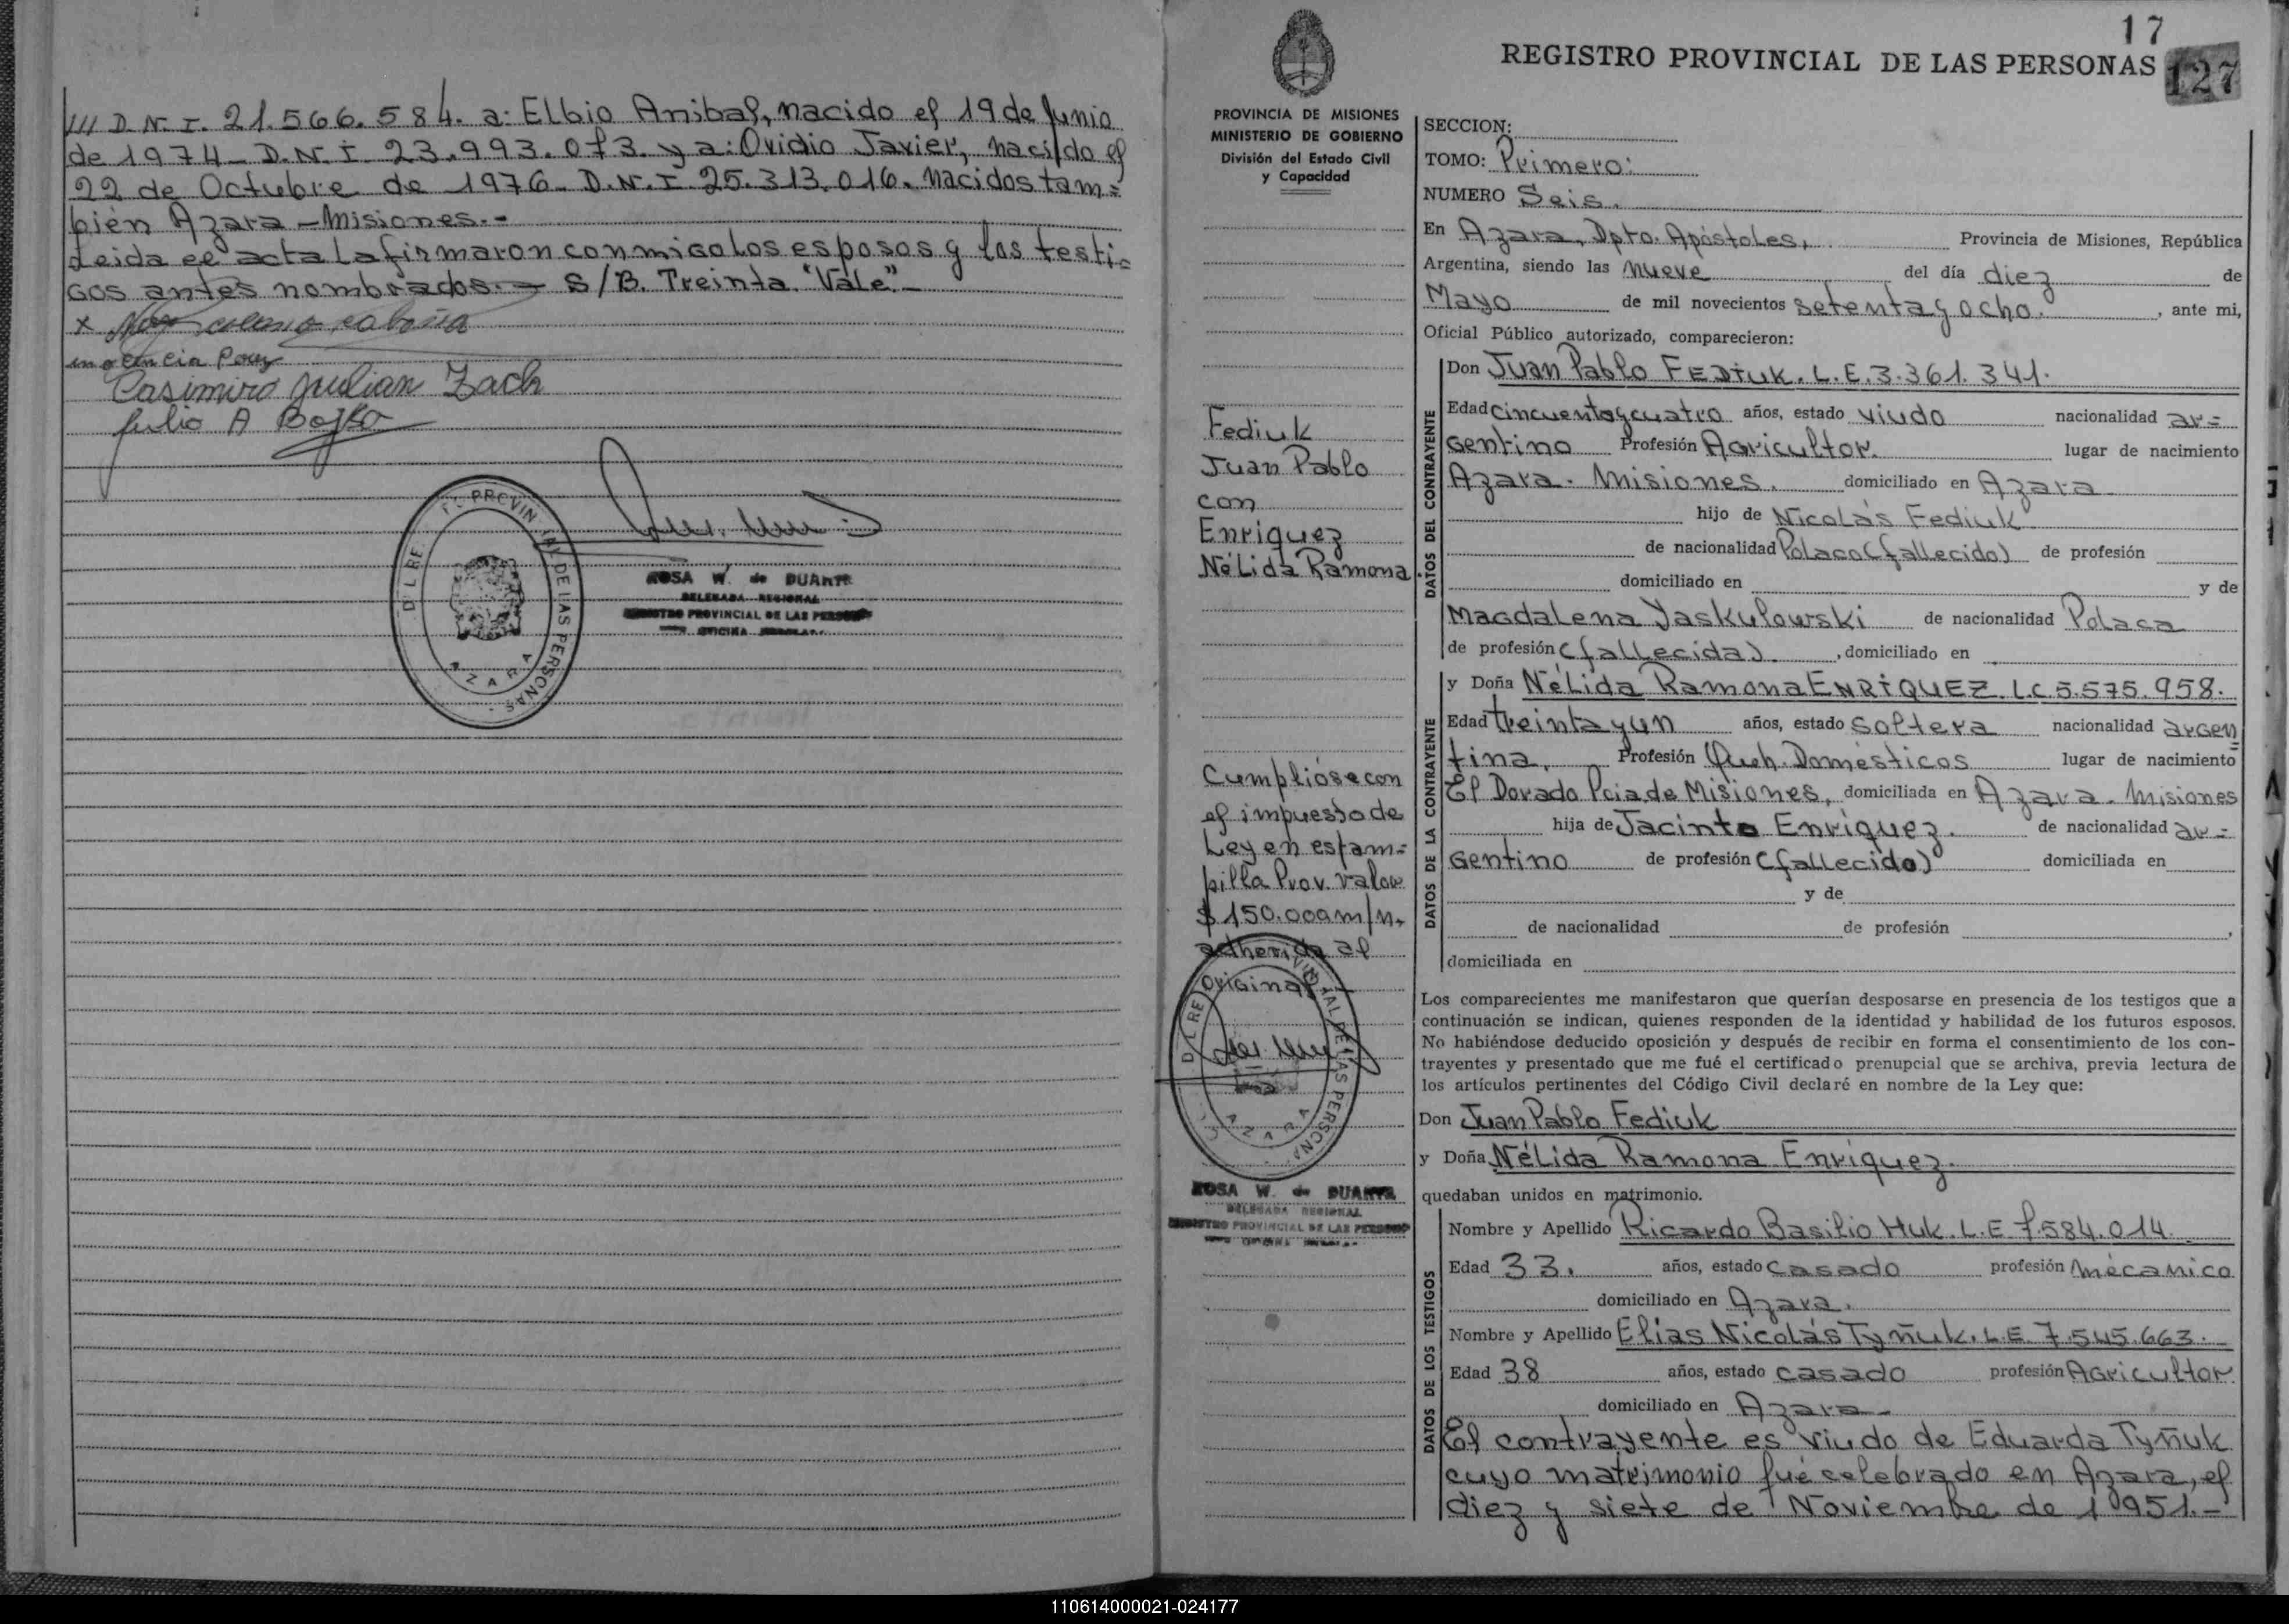 /// D.N.I. 21.566.584. a: Elbio Anibal, nacido el 19 de Junio
de 1974 - D.N.I 23.993.073. y a: Ovidio Javier, nacido el
22 de Octubre de 1976 - D.N.I 25.313.016. nacidos tam=
bién Azara - Misiones.-
Leida el acta la firmaron conmigo los esposos y los testi=
gos antes nombrados. - S/B. Treinta "Vale" -
x
inocencia
Casimiro Julian Zach
Julio A
AZARA
ROSA W. de DUARTE
DELEGADA REGIONAL
REGISTRO PROVINCIAL DE LAS PERSONAS
17
REGISTRO PROVINCIAL DE LAS PERSONAS
127
PROVINCIA DE MISIONES
MINISTERIO DE GOBIERNO
División del Estado Civil
y Capacidad
Fediuk
Juan Pablo
con
Enriquez
Nélida Ramona
Cumplióse con
el impuesto de
Ley en estam=
pilla Prov. valor
$ 150.000 m/n.
adherida al
Original
AZARA
ROSA W. de DUARTE
DELEGADA REGIONAL
REGISTRO PROVINCIAL DE LAS PERSONAS
SECCION:
TOMO: Primero:
NUMERO Seis.
En Azara, Dpto. Apóstoles, Provincia de Misiones, República
Argentina, siendo las nueve del día diez de
Mayo de mil novecientos setenta y ocho. , ante mi,
Oficial Público autorizado, comparecieron:
DATOS DEL CONTRAYENTE
Don Juan Pablo FEDIUK. L.E. 3.361.341.
Edad cincuenta y cuatro años, estado viudo nacionalidad ar=
gentino Profesión Agricultor. lugar de nacimiento
Azara. Misiones. domiciliado en Azara
hijo de Nicolás Fediuk
de nacionalidad Polaco (fallecido) de profesión
domiciliado en y de
Magdalena Yaskulowski de nacionalidad Polaca
de profesión (fallecida) , domiciliado en
DATOS DE LA CONTRAYENTE
y Doña Nélida Ramona ENRIQUEZ L.C 5.575.958.
Edad treinta y un años, estado soltera nacionalidad argen
tina, Profesión Queh. Domésticos lugar de nacimiento
El Dorado Pcia de Misiones, domiciliada en Azara. Misiones
hija de Jacinto Enriquez. de nacionalidad ar=
gentino de profesión (fallecido) domiciliada en
y de
de nacionalidad de profesión ,
domiciliada en
Los comparecientes me manifestaron que querían desposarse en presencia de los testigos que a
continuación se indican, quienes responden de la identidad y habilidad de los futuros esposos.
No habiéndose deducido oposición y después de recibir en forma el consentimiento de los con-
trayentes y presentado que me fué el certificado prenupcial que se archiva, previa lectura de
los artículos pertinentes del Código Civil declaré en nombre de la Ley que:
Don Juan Pablo Fediuk
y Doña Nélida Ramona Enriquez.
quedaban unidos en matrimonio.
DATOS DE LOS TESTIGOS
Nombre y Apellido Ricardo Basilio Huk. L.E 7.584.014.
Edad 33. años, estado casado profesión mécanico
domiciliado en Azara.
Nombre y Apellido Elias Nicolás Tyñuk. L.E 7.545.663.
Edad 38 años, estado casado profesión Agricultor
domiciliado en Azara
El contrayente es viudo de Eduarda Tyñuk
cuyo matrimonio fué celebrado en Azara, el
diez y siete de Noviembre de 1951.-
110614000021-024177